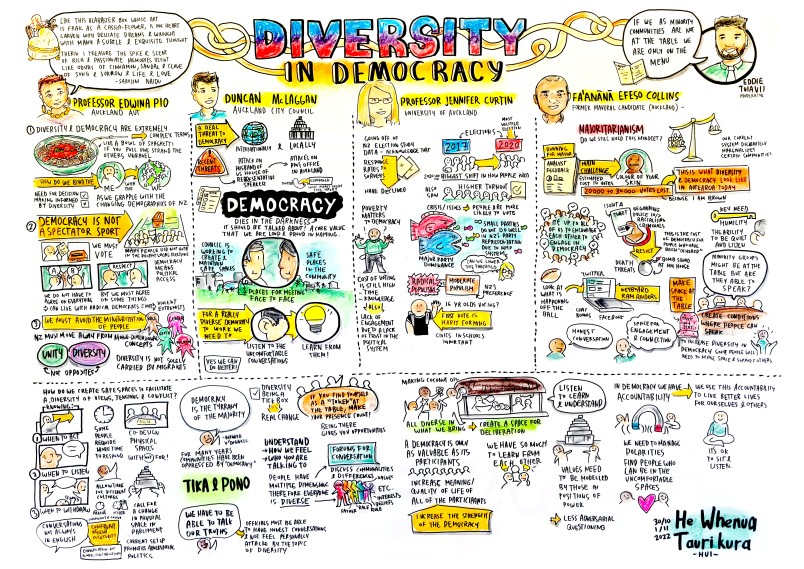 LIKE THIS ALABASTER BOX WHOSE ART
IS FRAIL AS A CASSIA-FLOWER, IS MY HEART
CARVEN WITH DELICATE DREAMS & WROUGHT
WITH MANY A SUBTLE & EXQUISITE THOUGHT
THEREIN I TREASURE THE SPICE & SCENT
OF RICH & PASSIONATE MEMORIES BLENT
LIKE ODURS OF CINNAMON, SANDAL & CLOVE
OF SONG & SORROW & LIFE & LOVE
- SAROJINI NAIDU
DIVERSITY
IN DEMOCRACY
IF WE AS MINORITY
COMMUNITIES ARE NOT
AT THE TABLE WE
ARE ONLY ON THE
MENU
EDDIE
PROFESSOR EDWINA PIO
AUCKLAND AUT
① DIVERSITY & DEMOCRACY ARE EXTREMELY
COMPLEX TERMS
LIKE A BOWL OF SPAGHETTI
IF YOU PULL ONE STRAND THE
OTHERS UNRAVEL
HOW DO WE BIND THE
ME
WE
NEED FOR DECISION
MAKING INFORMED
AS WE GRAPPLE WITH THE
CHANGING DEMOGRAPHICS OF NZ
②
DEMOCRACY IS NOT
A SPECTATOR SPORT
WE MUST
VOTE
MANY PEOPLE DID NOT VOTE
DEMOCRACY
MEANS
POLITICAL
ACCESS
A
B
RESPECT
WE DO NOT HAVE TO
AGREE ON EVERYTHING
BUT WE MUST AGREE
ON SOME THINGS
③ WE MUST AVOID THE MINIATURIZATION
OF PEOPLE
NZ MUST MOVE AWAY FROM
CONCEPTS
UNITY
DIVERSITY
NOT OPPOSITES
DIVERSITY IS NOT SOLELY
CARRIED BY MIGRANTS
DUNCAN McLAGGAN
AUCKLAND CITY COUNCIL
A REAL
THREAT TO
DEMOCRACY
INTERNATIONALLY
& LOCALLY
RECENT
THREATS
ATTACK ON
US HOUSE OF
REPRESENTATIVE
SPEAKER
ATTACKS ON
OFFICE
IN AUCKLAND
DEMOCRACY
DIES IN THE DARKNESS
IT SHOULD BE TALKED ABOUT! A CORE VALUE
THAT WE ARE LOUD & PROUD IN KEEPING
COUNCIL IS
LOOKING TO
CREATE &
MAINTAIN
SAFE SPACES
SAFE
PLACES
IN THE
COMMUNITY
PLACES FOR MEETING
FACE TO FACE
FOR A REALLY
DIVERSE DEMOCRACY
TO WORK WE
NEED TO
YES WE CAN
DO BETTER!
LISTEN TO THE
UNCOMFORTABLE
CONVERSATIONS
LEARN FROM
THEM!
PROFESSOR JENNIFER CURTIN
UNIVERSITY OF AUCKLAND
GOING OFF OF
NZ ELECTION STUDY
DATA - ACKNOWLEDGE THAT
RESPONSE
RATES TO
SURVEYS
HAVE DECLINED
ELECTIONS
2017
2020
BIGGEST SHIFT IN HOW PEOPLE VOTED
ALSO
HIGHER TURNOUT
CRISIS/ISSUES → PEOPLE ARE MORE
LIKELY TO VOTE
POVERTY
MATTERS
TO DEMOCRACY
MAJOR
PARTY
DOMINANCE
SMALL PARTIES
DO SO WELL
IN NZ'S PARTY
REPRESENTATION
DUE TO MMP
SYSTEM
COST OF VOTING
IS STILL HIGH
TIME
KNOWLEDGE
ALSO
LACK OF
ENGAGEMENT
DUE TO A LACK
OF TRUST IN
THE POLITICAL
SYSTEM
RADICAL
POPULISM
MODERATE
POPULISM
NZ'S
PREFERENCE
16 YR OLDS VOTING?
FIRST VOTE IS
HABIT FORMING
CIVICS IN SCHOOLS IMPORTANT
FA'ANĀNĀ EFESO COLLINS
FORMER MAYORAL CANDIDATE (AUCKLAND)
MAJORITARIANISM
DO WE STILL HOLD THIS MINDSET?
OUR CURRENT
SYSTEM DELIBERATELY
MARGINALIZES
CERTAIN COMMUNITIES
RUNNING
FOR MAYOR
ANALYST
FEEDBACK
MAIN
CHALLENGE
COLOUR OF YOUR
SKIN
ESTIMATED
COST TO VOTES
20000 TO 30000 VOTES LOST
BECAUSE I AM BROWN
THIS IS WHAT DIVERSITY
& DEMOCRACY LOOK LIKE
IN AOTEAROA TODAY
IT'S UP TO ALL
OF US TO
ENCOURAGE
EACH OTHER TO
ENGAGE IN
DEMOCRACY
RESIST
THIS IS THE COST OF
DEMOCRACY FOR
DEATH
THREATS
BOMB SQUAD
AT MY HOUSE
KEY NEED
HUMILITY
THE ABILITY TO
BE QUIET AND
LISTEN
LOOK AT
WHAT IS
HAPPENING
OFF THE
BALL
TWITTER
KEYBOARD
HONEST
CONVERSATION
SPACE FOR
ENGAGEMENT
& CONNECTION
MAKE
SPACE
AT THE
TABLE
MINORITY GROUPS
MUST BE AT THE
TABLE BUT ARE
THEY ABLE TO
SPEAK?
CREATE CONDITIONS
WHERE PEOPLE CAN
SPEAK
TO INCREASE DIVERSITY IN
DEMOCRACY SOME PEOPLE WILL
NEED TO MAKE SPACE & SUPPORT OTHERS
HOW DO WE CREATE SAFE SPACES TO FACILITATE
A DIVERSITY OF VIEWS, TENSIONS & CONFLICT?
KNOWING
① WHEN TO ACT
② WHEN TO LISTEN
③ WHEN TO WITHDRAW
SOME
PEOPLE
REQUIRE
MORE TIME
TO RESPOND
CO-DESIGN
PHYSICAL
SPACES
WITH NOT FOR!
CALL FOR A
CHANGE IN
PHYSICAL
SPACE IN
PARLIAMENT
CONVERSATIONS
NOT ALWAYS
IN ENGLISH
CURRENT SET UP
PROMOTES ADVERSARIAL
POLITICS
DEMOCRACY
IS THE TYRANNY OF
THE MAJORITY
FOR MANY YEARS
COMMUNITIES HAVE BEEN
OPPRESSED BY "DEMOCRACY"
TIKA & PONO
WE HAVE TO BE
ABLE TO TALK
OUR TRUTHS
OFFICIALS MUST BE ABLE
TO HAVE HONEST CONVERSATIONS
& NOT FEEL PERSONALLY
ATTACKED BY THE TOPIC
OF DIVERSITY
DIVERSITY
BEING A
TICK BOX
REAL CHANGE
IF YOU FIND YOURSELF
AS A "TOKEN" AT
THE TABLE, MAKE
YOUR PRESENCE COUNT!
BEING THERE
GIVES YOU OPPORTUNITIES
UNDERSTAND
→ HOW WE FEEL
→ WHO YOU ARE
TALKING TO
FORUMS FOR
CONVERSATION
DISCUSS COMMONALITIES
& DIFFERENCES
PEOPLE HAVE
MULTIPLE DIMENSIONS
THEREFORE EVERYONE
IS DIVERSE
ETC.
MAKING COCONUT OIL
ALL DIVERSE IN
WHAT WE BRING
CREATE A SPACE FOR
DELIBERATION
LISTEN
TO LEARN
& UNDERSTAND
A DEMOCRACY IS ONLY
AS VALUABLE AS ITS
PARTICIPANTS
INCREASE MEANING/
QUALITY OF LIFE OF
ALL OF THE PARTICIPANTS
INCREASE THE STRENGTH
OF THE DEMOCRACY
WE HAVE SO MUCH
TO LEARN FROM
EACH OTHER
VALUES NEED
TO BE MODELLED
BY THOSE IN
POSITIONS OF
POWER
LESS ADVERSARIAL
QUESTIONING
IN DEMOCRACY WE HAVE
ACCOUNTABILITY
WE USE THIS ACCOUNTABILITY
TO LIVE BETTER LIVES
FOR OURSELVES & OTHERS
WE NEED TO MANAGE
POLARITIES
FIND PEOPLE WHO
CAN BE IN THE
UNCOMFORTABLE
SPACES
IT'S OK
TO SIT &
LISTEN.
30/10
1/11
2022
He Whenua
Taurikura
- HUI -